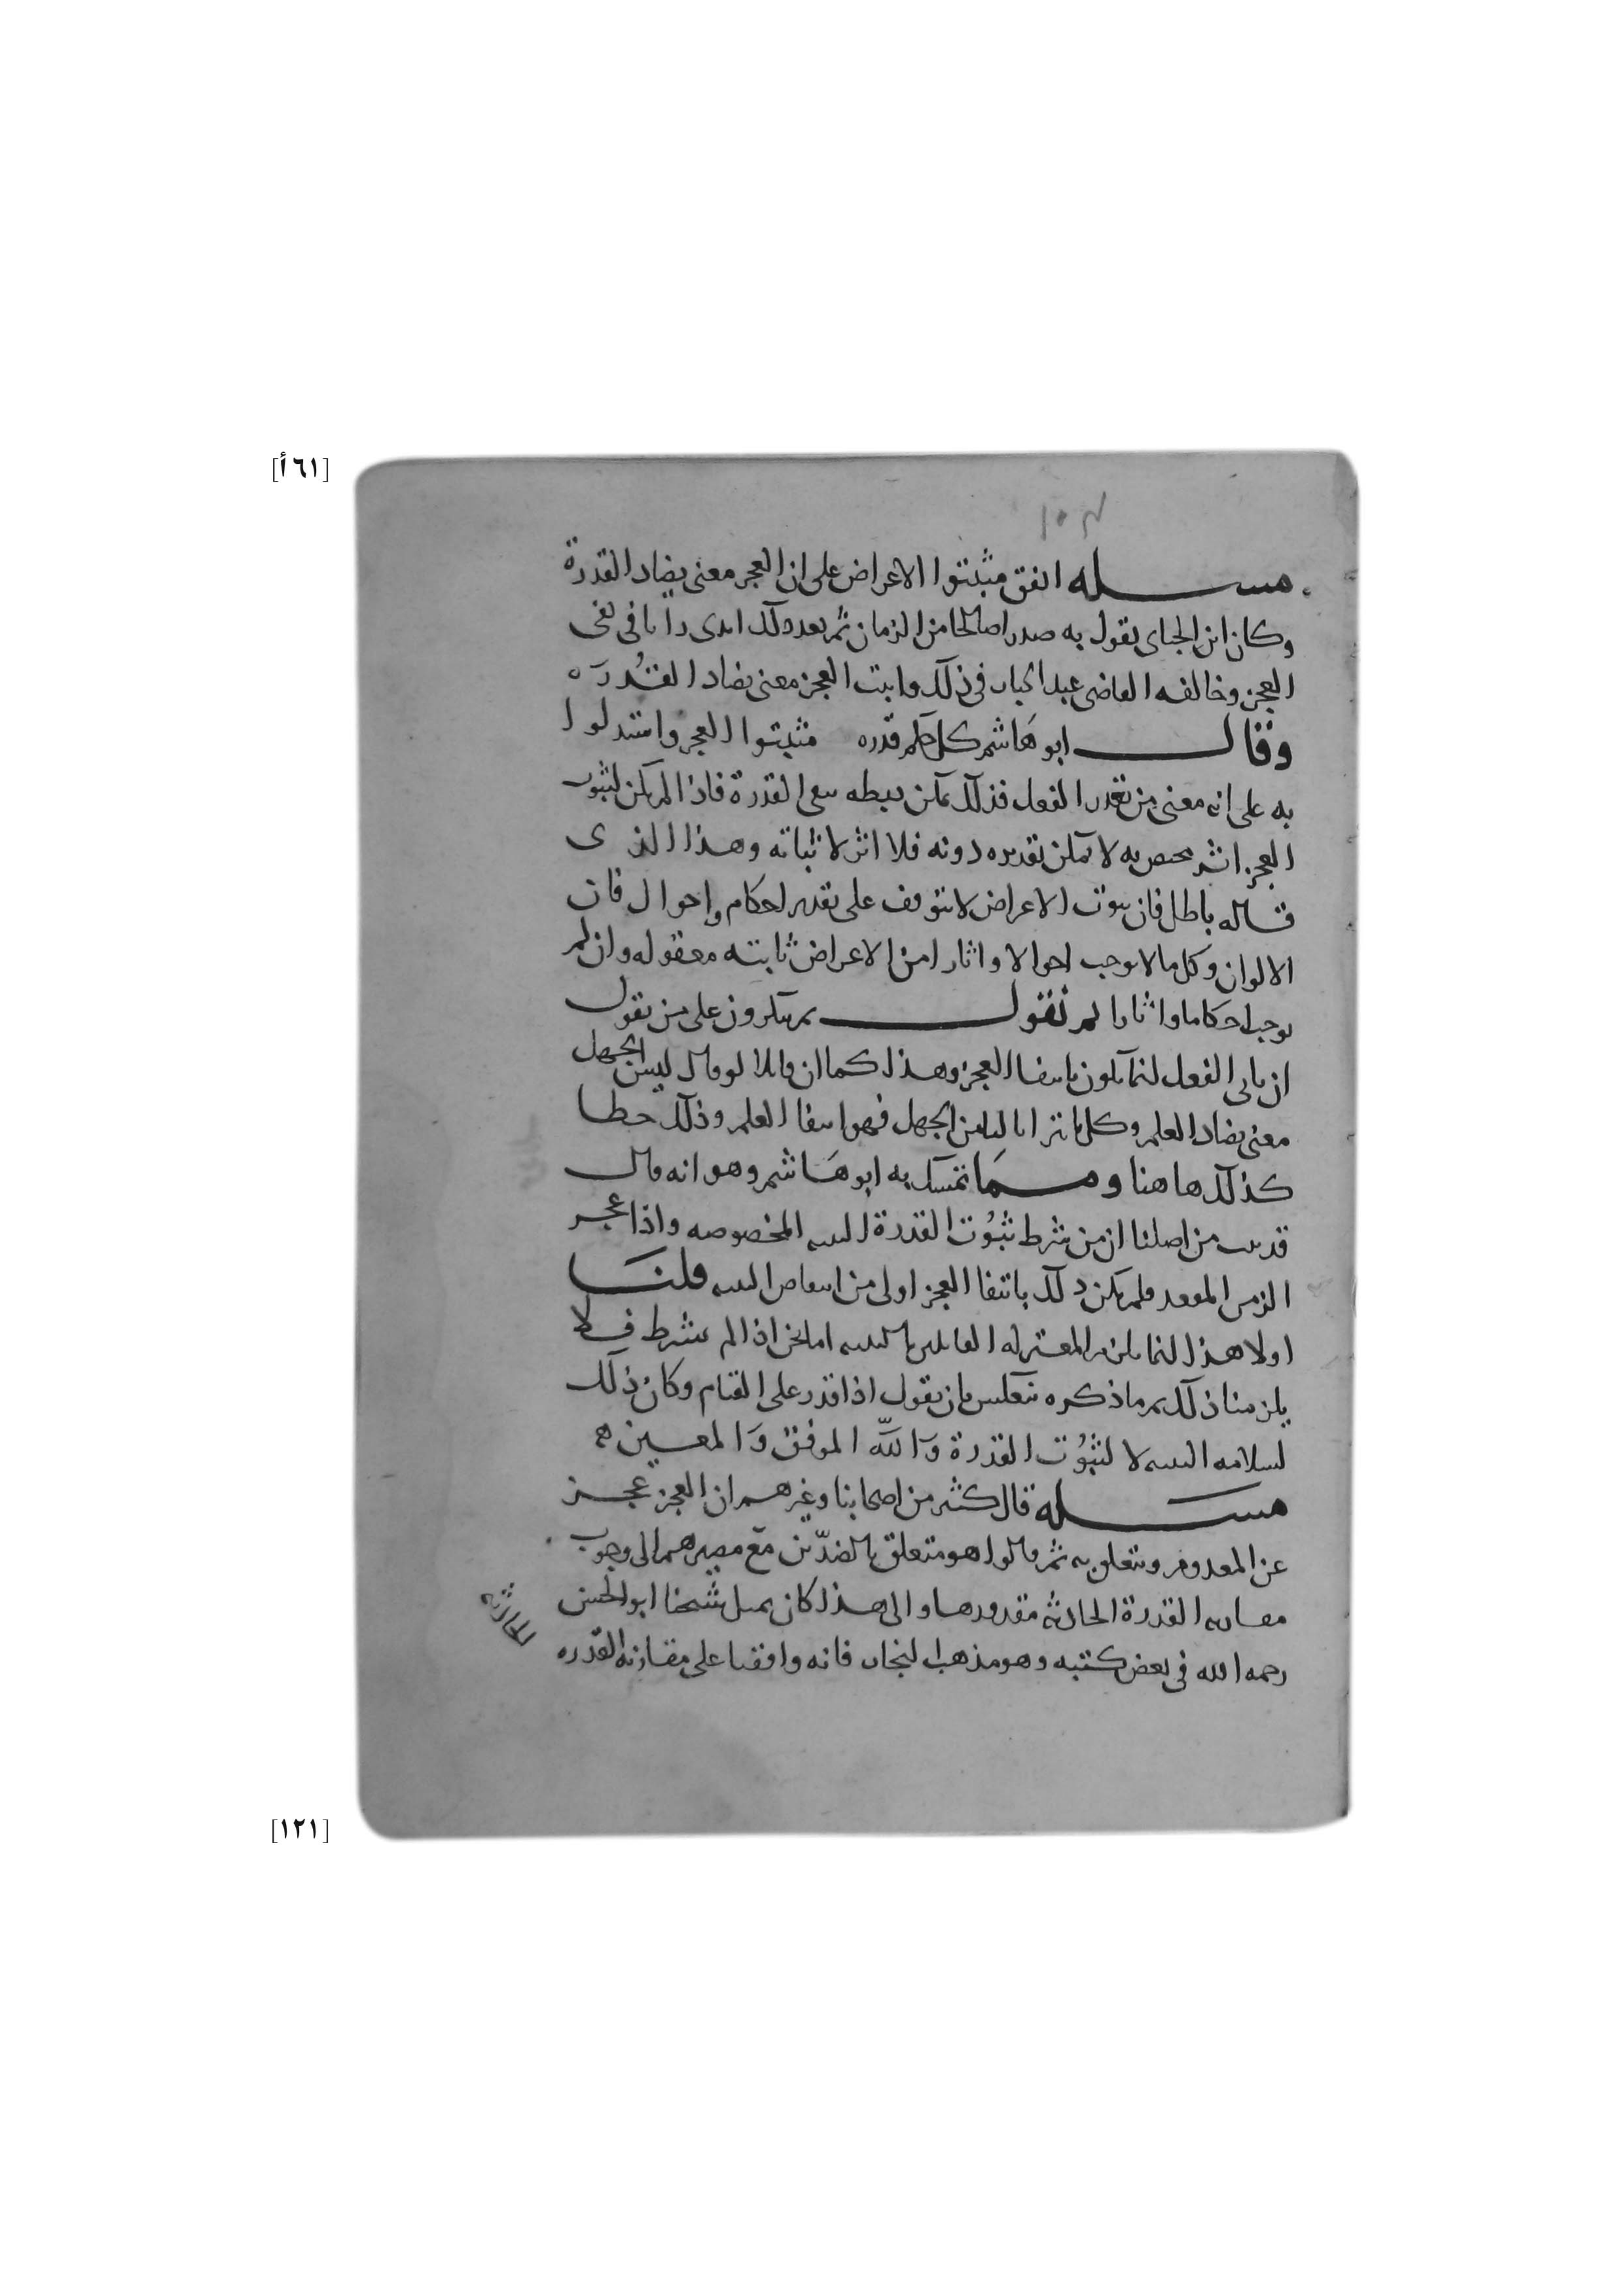 [٦١أ]
مسله اتفق مثبتوا الاعراض على ان العجز معنى يضاد القدرة
وكان ابن الجباى يقول به صدرا صالحا من الزمان ثم بعد ذلك ابدى رايا فى نفى
العجز وخالفه القاضى عبد الجبار فى ذلك واثبت العجز معنى يضاد القدرة
وقال ابو هاشم كل حكم قدره مثبتوا العجز واستدلوا
به على انه معنى من تعذر الفعل فذلك يمكن بنفى القدرة فاذا لم يكن لثبوت
العجز اثر يختص به لا يمكن تقديره دونه فلا اثر لاثباته وهذا الذى
قاله باطل فان ثبوت الاعراض لا يتوقف على تقدير احكام واحوال فان
الالوان وكل ما لا يوجب احوالا واثارا من الاعراض ثابته معقوله وان لم
يوجب احكاما واثارا ثم نقول بم تنكرون على من يقول
ان تاتى الفعل انما يكون بانتفا العجز وهذا كما ان قايلا لو قال ليس الجهل
معنى يضاد العلم وكل ما من الجهل فهو انتفا العلم وذلك خطا
كذلك هاهنا ومما تمسك به ابو هاشم وهو انه قال
قد من اصلنا ان من شرط ثبوت القدرة البنيه المخصوصه واذا عجز
الزمن المقعد فلم يكن ذلك بانتفا العجز اولى من انتقاص البنيه قلنا
اولا هذا انما يلزم المعتزله القايلين بالبنيه اما نحن اذا لم نشرط فلا
يلزمنا ذلك ثم ما ذكره ينعكس بان يقول اذا قدر على القيام وكان ذلك
لسلامه البنيه لا لثبوت القدرة والله الموفق والمعين
مسله قال كثير من اصحابنا وغيرهم ان العجز عجز
عن المعدوم ويتعلق به ثم قالوا هو متعلق بالضدين مع مصيرهم الى وجوب
مقارنه القدرة الحادثه مقدورها والى هذا كان يميل شيخنا ابو الحسن
رحمه الله فى بعض كتبه وهو مذهب النجار فانه وافقنا على مقارنه القدره
الحادثه
[١٢١]